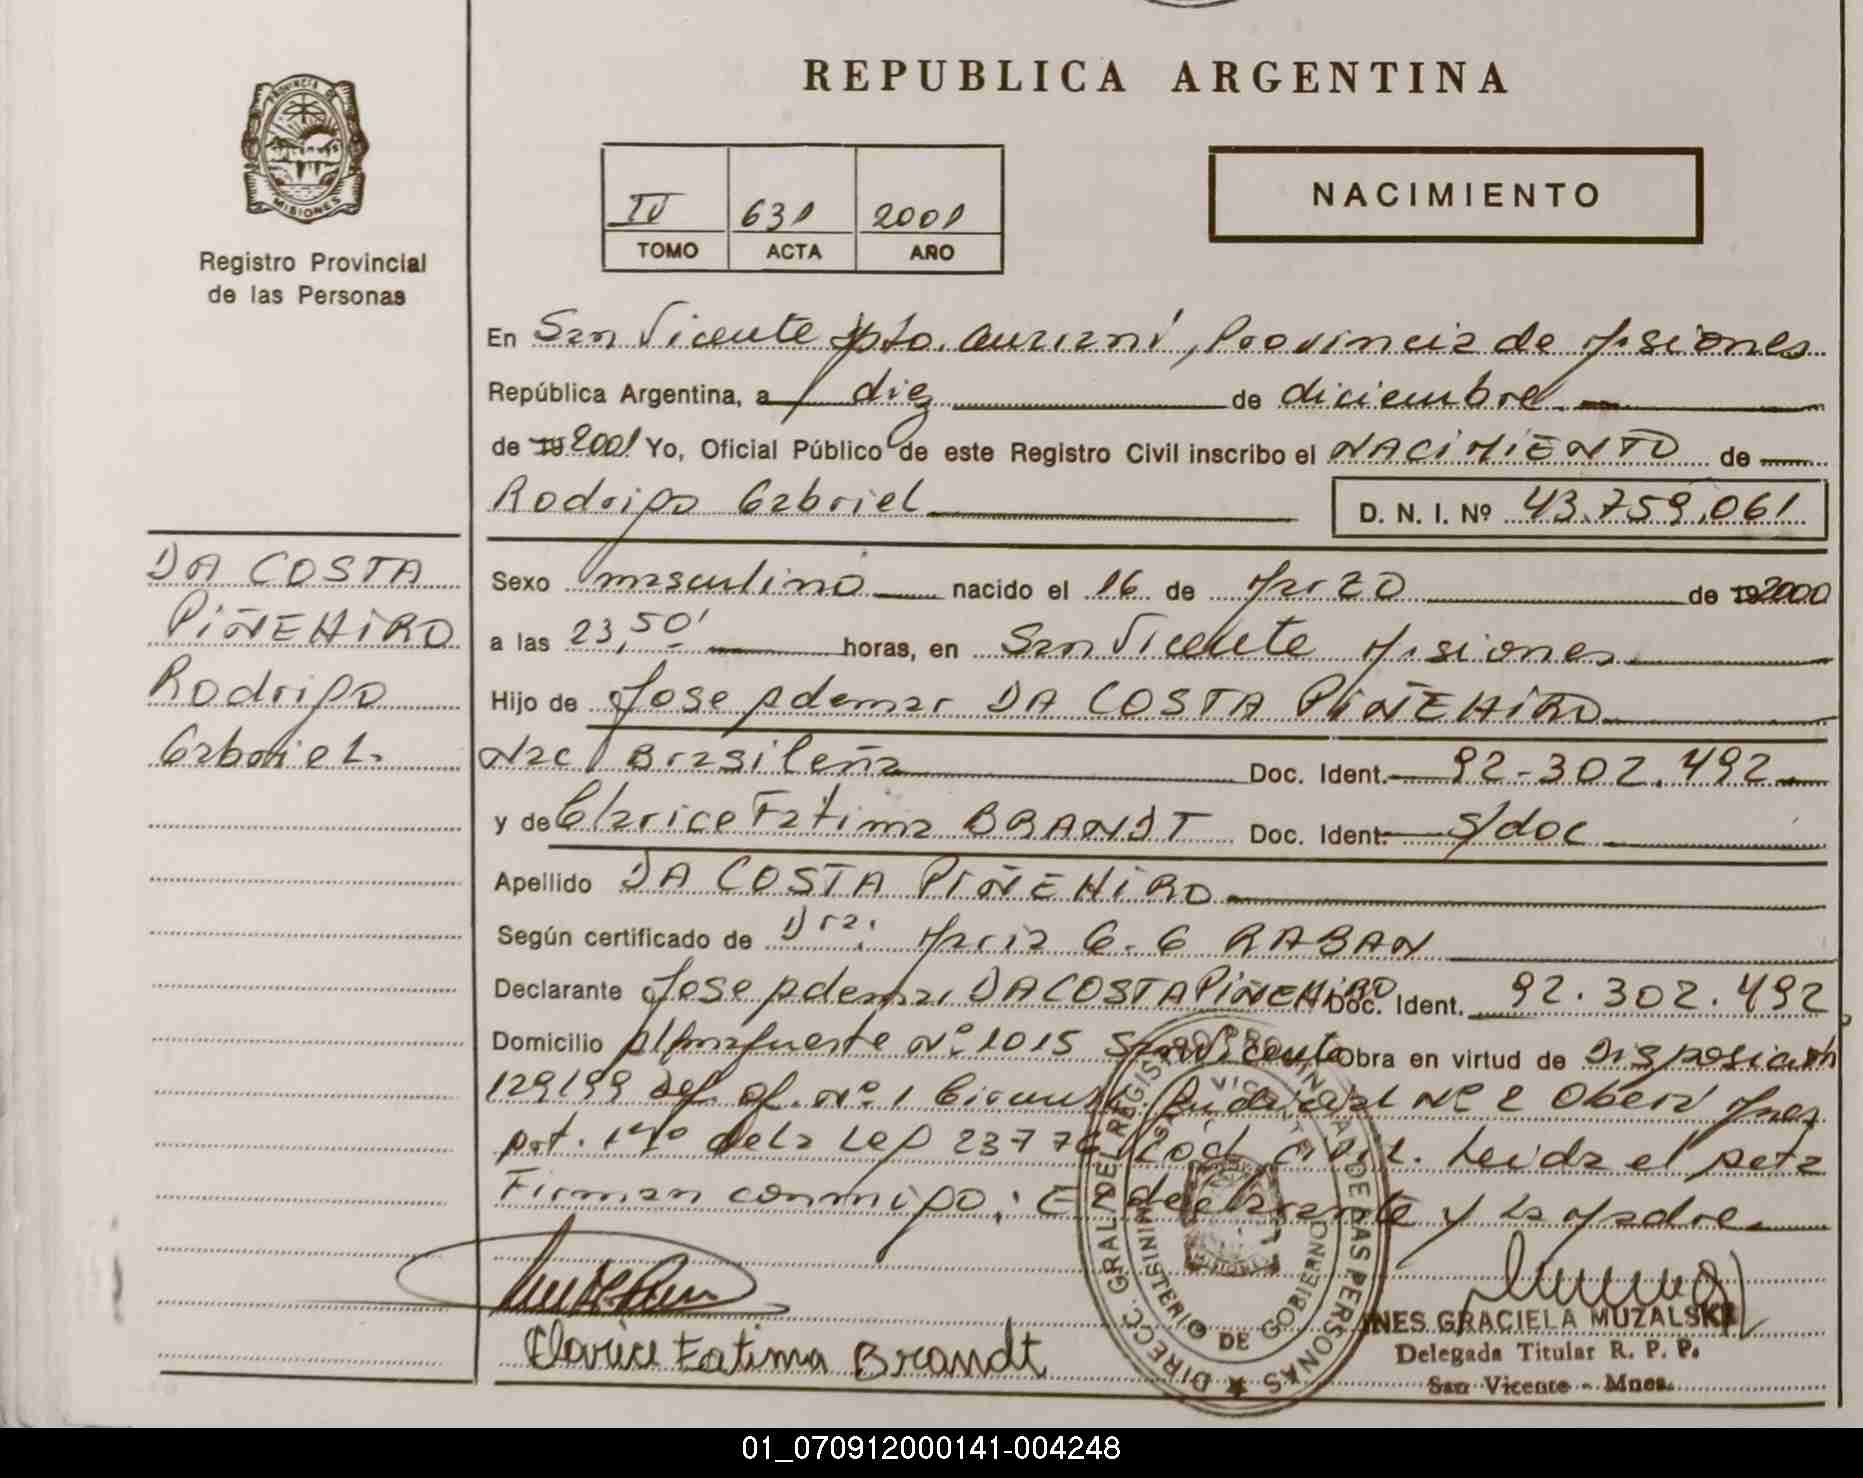 PROVINCIA DE
MISIONES
Registro Provincial
de las Personas
REPUBLICA ARGENTINA
IV 631 2001
TOMO ACTA AÑO
NACIMIENTO
En San Vicente Dpto. Guaraní, Provincia de Misiones
República Argentina, a diez de diciembre
de 19 2001 Yo, Oficial Público de este Registro Civil inscribo el NACIMIENTO de
Rodrigo Gabriel D. N. I. Nº 43.759.061
DA COSTA
PIÑEHIRO
Rodrigo
Gabriel.
Sexo masculino nacido el 16 de Marzo de 19 2000
a las 23,50' horas, en San Vicente Misiones
Hijo de Jose Ademar DA COSTA PIÑEHIRO
Nac. Brasileña Doc. Ident. 92-302.492
y de Clarice Fatima BRANDT Doc. Ident. S/doc
Apellido DA COSTA PIÑEHIRO
Según certificado de Dra. Maria G. G RABAN
Declarante Jose Ademar DA COSTA PIÑEHIRO Doc. Ident. 92.302.492
Domicilio Almafuerte Nº 1015 San Vicente Obra en virtud de Disposición
129/99 Def. Of. Nº 1 Circunsc. Judicial Nº 2 Oberá Mnes
Art. 1º de la Ley 23776 Cod. civil. Leida el Acta
Firman conmigo: El declarante y la Madre.
Clarice Fatima Brandt
DIRECC. GRAL. DEL REGISTRO PROVINCIAL DE LAS PERSONAS
SAN VICENTE
MINISTERIO DE GOBIERNO
INES GRACIELA MUZALSKI
Delegada Titular R. P. P.
San Vicente - Mnes.
01_070912000141-004248